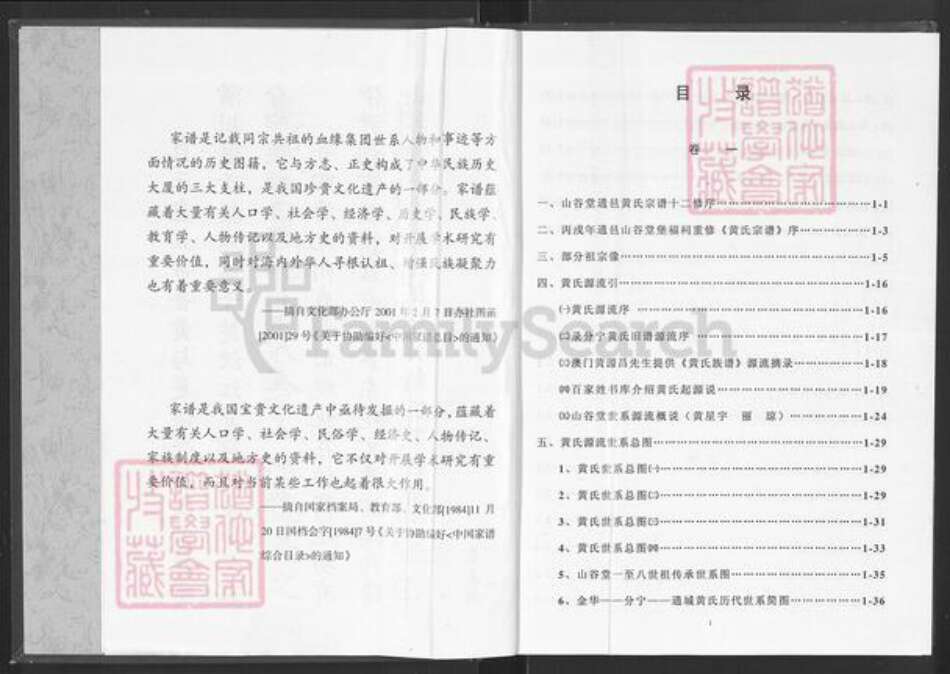 家谱是记载同宗共祖的血缘集团世系人物和事迹等方
面情况的历史图籍，它与方志、正史构成了中华民族历史
大厦的三大支柱，是我国珍贵文化遗产的一部分。家谱蕴
藏着大量有关人口学、社会学、经济学、历史学、民族学、
教育学、人物传记以及地方史的资料，对开展学术研究有
重要价值，同时对海内外华人寻根认祖、增强民族凝聚力
也有着重要意义。
——摘自文化部办公厅 2001 年 2 月 7 日办社图函
[2001]29 号《关于协助编好<中国家谱总目>的通知》
家谱是我国宝贵文化遗产中亟待发掘的一部分，蕴藏着
大量有关人口学、社会学、民俗学、经济史、人物传记、
家族制度以及地方史的资料，它不仅对开展学术研究有重
要价值，而且对当前某些工作也起着很大作用。
——摘自国家档案局、教育部、文化部[1984]11 月
20 日国档会字[1984]7 号《关于协助编好<中国家谱
综合目录>的通知》
目 录
卷 一
一、山谷堂通邑黄氏宗谱十二修序……1-1
二、丙戌年通邑山谷堂堡福祠重修《黄氏宗谱》序……1-3
三、部分祖宗像……1-5
四、黄氏源流引……1-16
㈠黄氏源流序……1-16
㈡录分宁黄氏旧谱源流序……1-17
㈢澳门黄源昌先生提供《黄氏族谱》源流摘录……1-18
㈣百家姓书库介绍黄氏起源说……1-19
㈤山谷堂世系源流概说（黄星宇 丽 琼）……1-24
五、黄氏源流世系总图……1-29
1、黄氏世系总图㈠……1-29
2、黄氏世系总图㈡……1-29
3、黄氏世系总图㈢……1-31
4、黄氏世系总图㈣……1-33
5、山谷堂一至八世祖传承世系图……1-35
6、金华——分宁——通城黄氏历代世系简图……1-36
1
FamilySearch